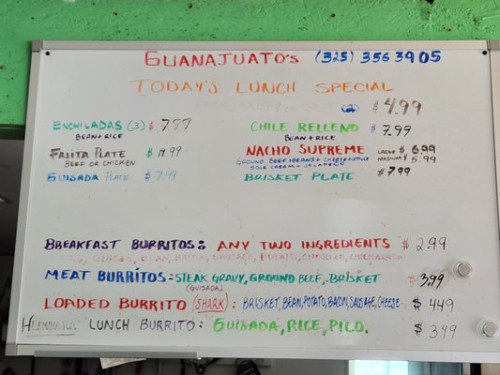 GUANAJUATO'S (325) 356 3905
TODAY'S LUNCH SPECIAL
$4.99
ENCHILADAS (3) $7.99
BEAN & RICE
CHILE RELLENO $7.99
BEAN & RICE
FAJITA PLATE
BEEF OR CHICKEN
NACHO SUPREME LARGE $6.99
MEDIUM $5.99
GROUND BEEF
SOUR CREAM + JALAPEÑO
GUISADA PLATE $7.99
BRISKET PLATE $7.99
BREAKFAST BURRITOS: ANY TWO INGREDIENTS $2.99
MEAT BURRITOS: STEAK GRAVY, GROUND BEEF, BRISKET $3.99
(GUISADA)
LOADED BURRITO (SHARK): BRISKET, BEAN, POTATO, BACON, SAUSAGE, CHEEZE $4.49
LUNCH BURRITO: GUISADA, RICE, PICO. $3.49